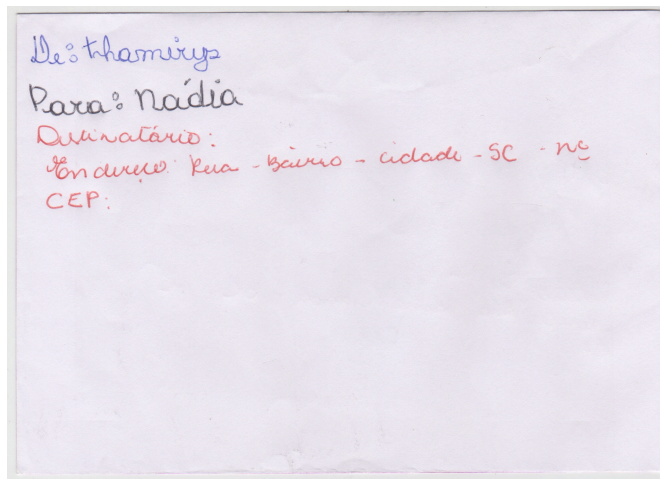 De: Thamirys
Para: Nádia
Destinatário:
Endereço: Rua - Bairro - cidade - SC - nº
CEP: